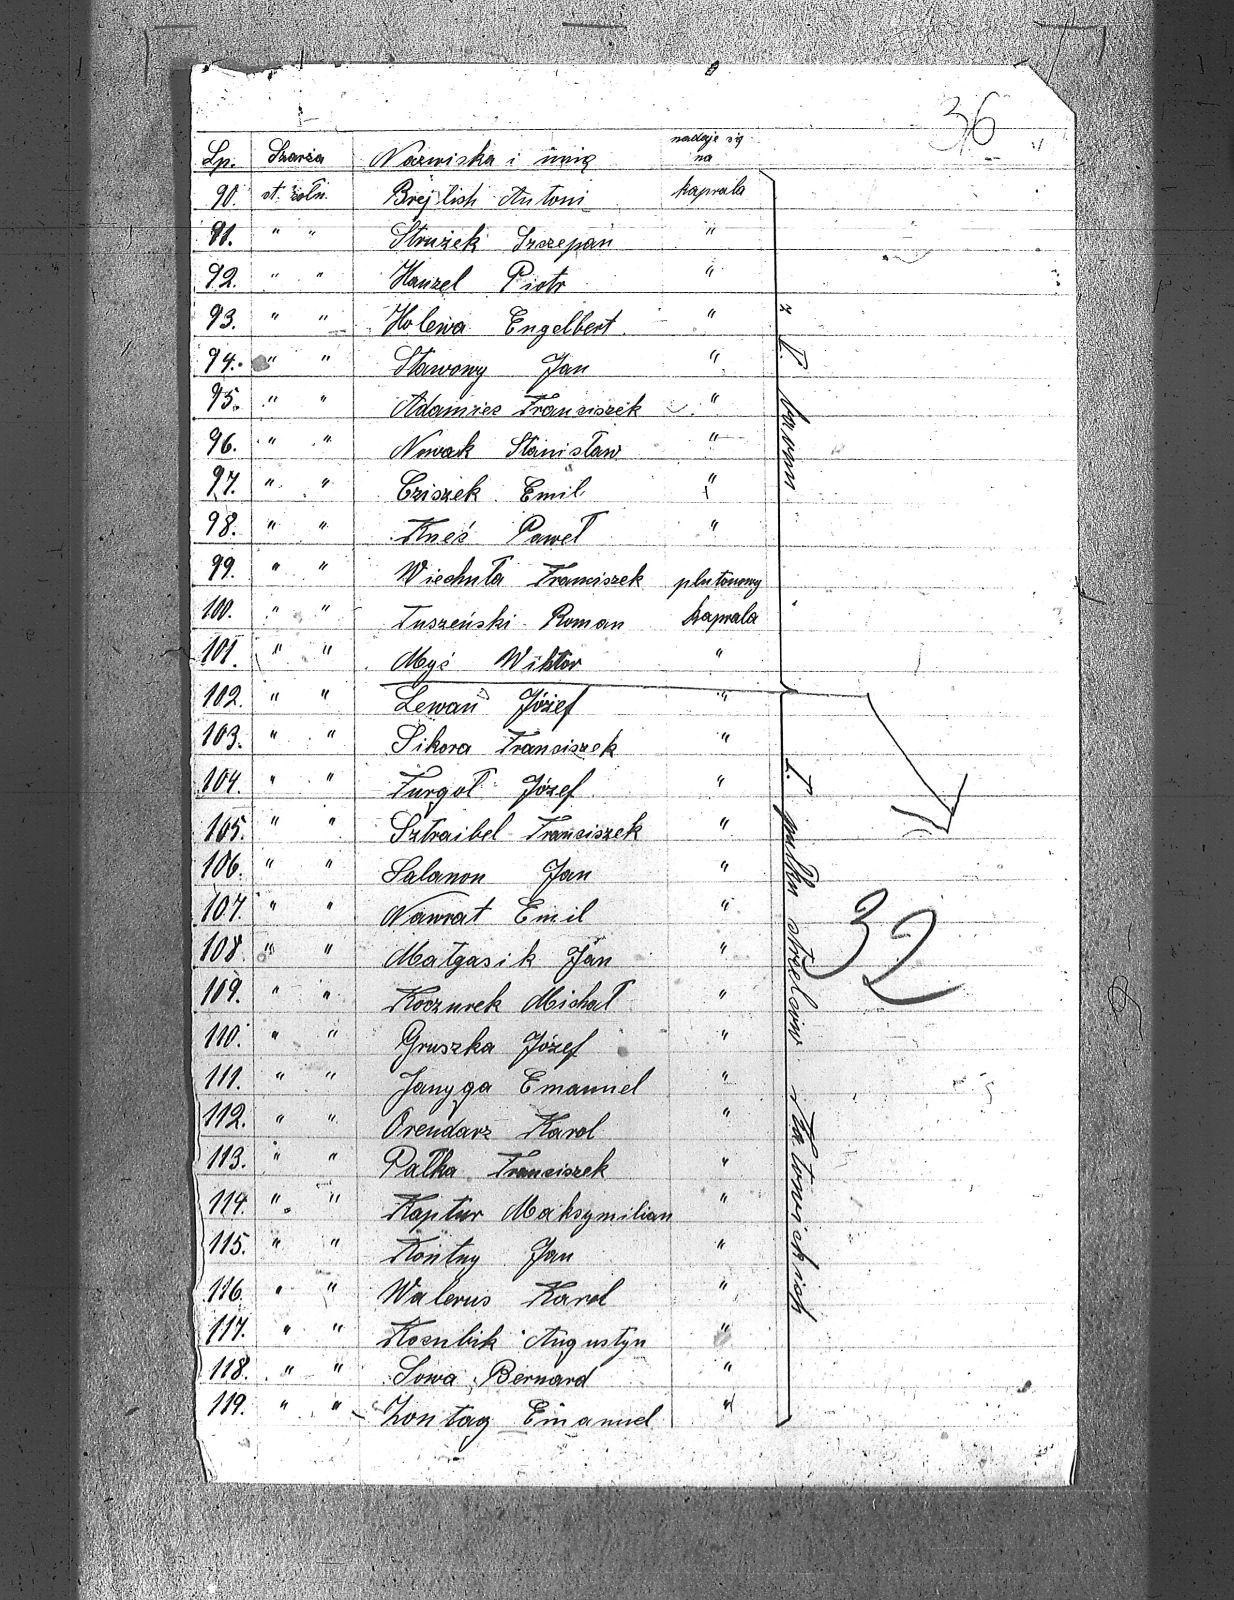 36
Lp. Szarża Nazwiska i imię nadaje się na
90. st. żołn. Brejlich Antoni kaprala
91. " " Strużek Szczepan "
92. " " Hanzel Piotr "
93. " " Holewa Engelbert "
94. " " Stawowy Jan "
95. " " Adamiec Franciszek "
96. " " Nowak Stanisław "
97. " " Cziszek Emil "
98. " " Kneź Paweł "
99. " " Wiechuła Franciszek plutonowy
100. " " Tuszeński Roman kaprala
101. " " Myś Wiktor "
102. " " Lewań Józef "
103. " " Sikora Franciszek "
104. " " Furgoł Józef "
105. " " Sztraibel Franciszek "
106. " " Salanon Jan "
107. " " Nawrat Emil "
108. " " Małgasik Jan "
109. " " Koczurek Michał "
110. " " Gruszka Józef "
111. " " Janyga Emanuel "
112. " " Orendarz Karol "
113. " " Pałka Franciszek "
114. " " Kaptur Maksymilian "
115. " " Kontny Jan "
116. " " Walerus Karol "
117. " " Augustyn "
118. " " Sowa Bernard "
119. " " Zontag Emanuel "
z I. baonu
I. pułku strzelców
32